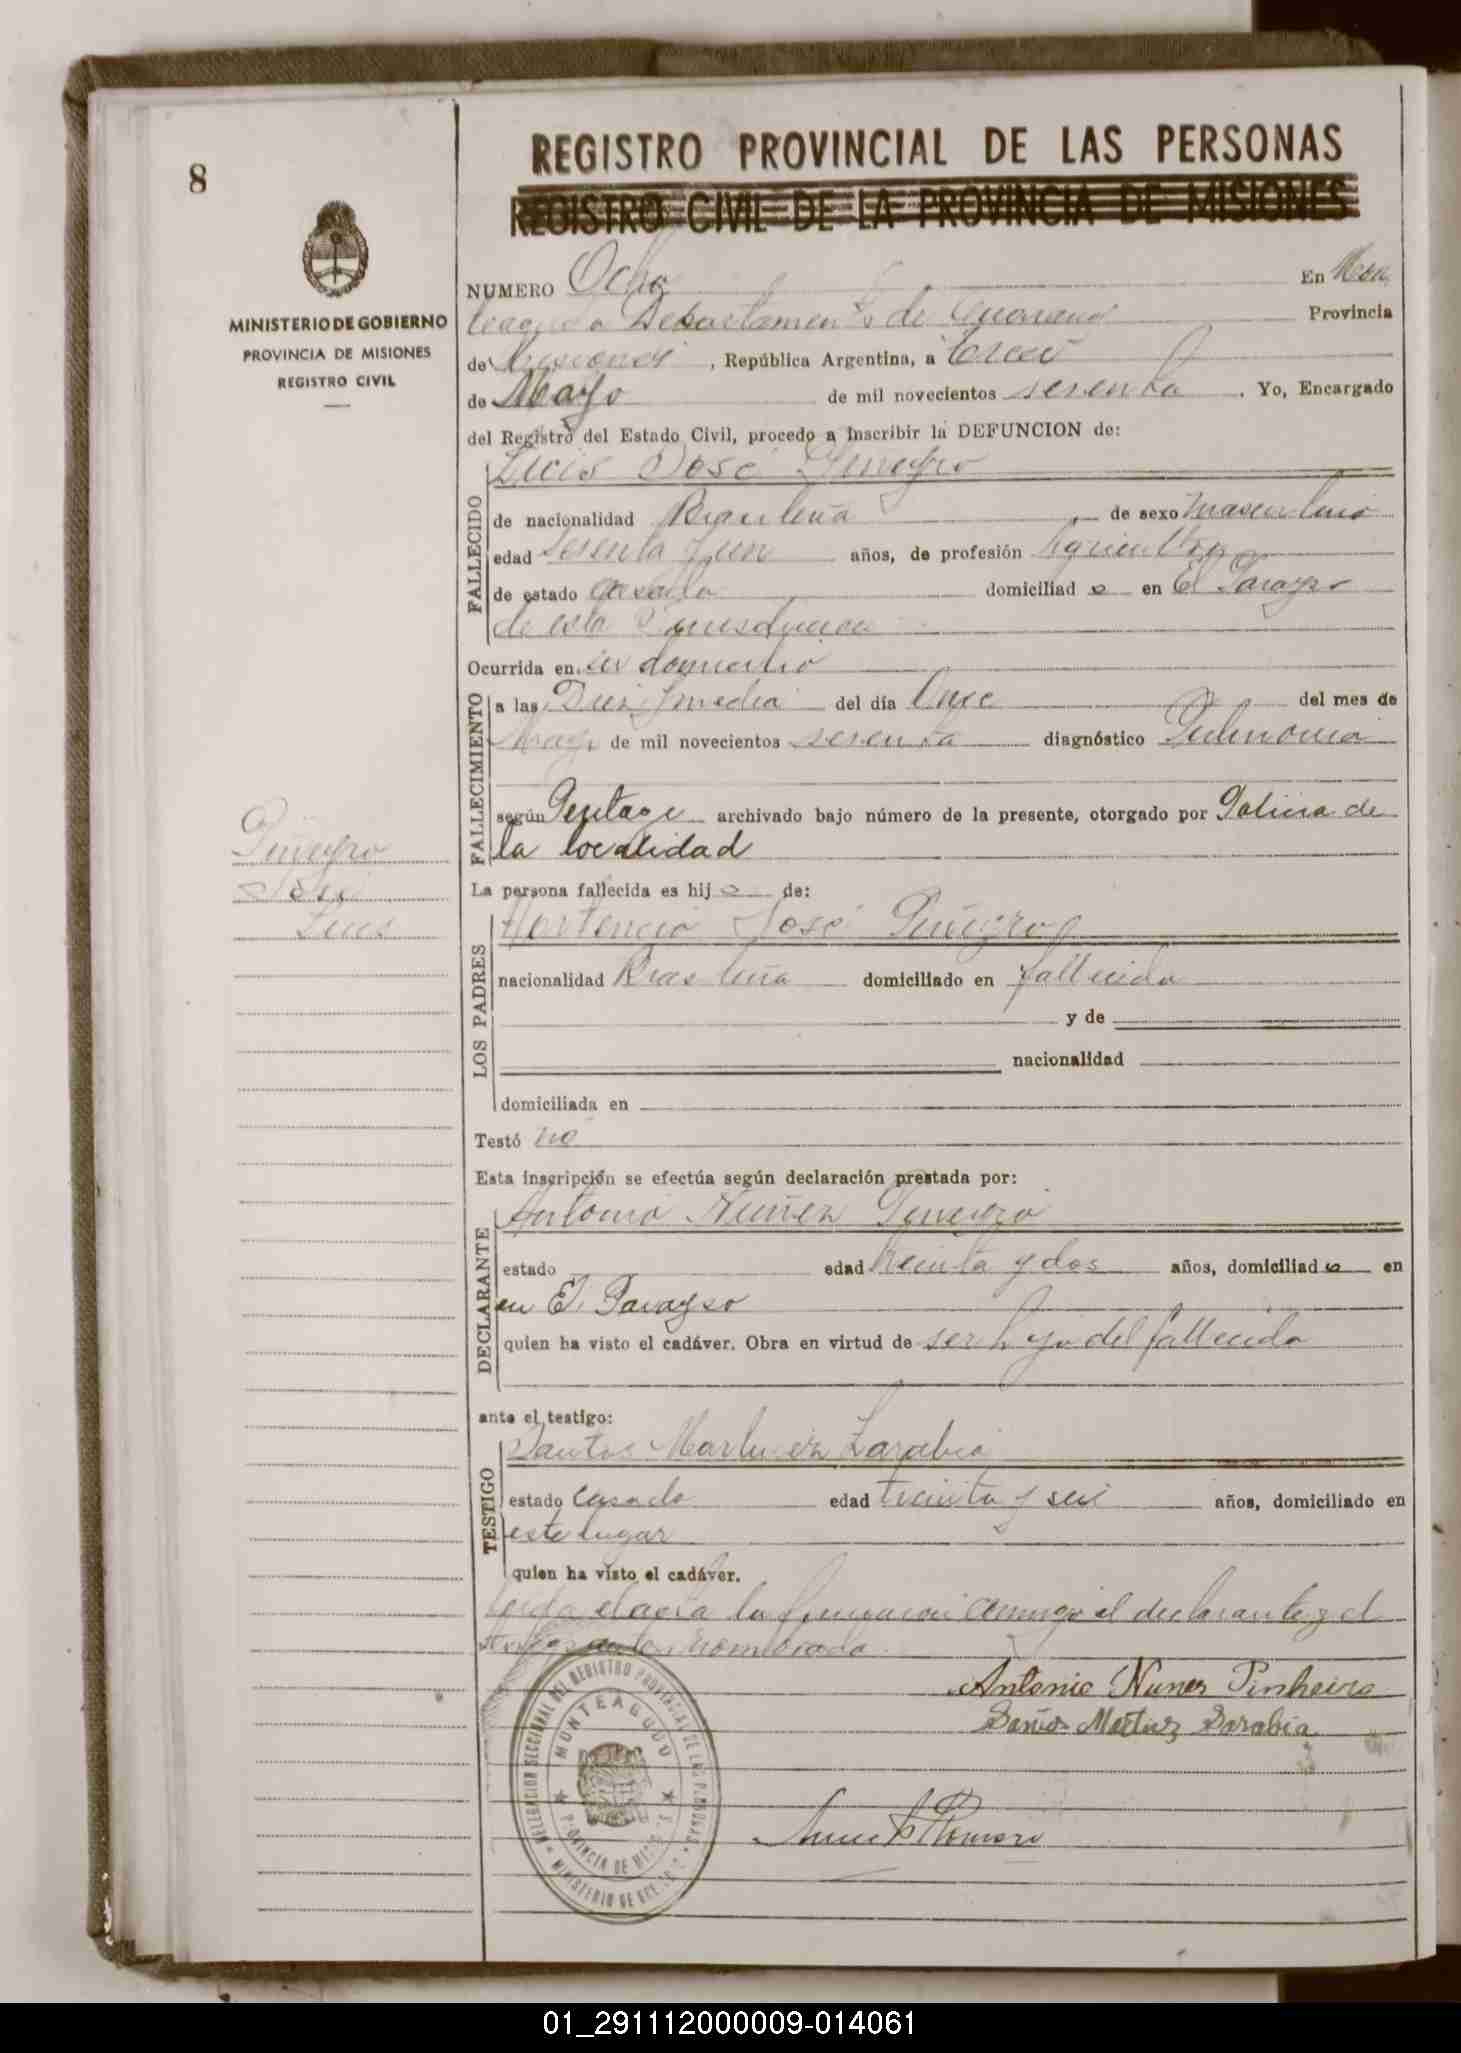 8
MINISTERIO DE GOBIERNO
PROVINCIA DE MISIONES
REGISTRO CIVIL
Piñeyro
José
Luis
REGISTRO PROVINCIAL DE LAS PERSONAS
REGISTRO CIVIL DE LA PROVINCIA DE MISIONES
NUMERO Ocho En Mon
teagudo Departamento de Guaraní Provincia
de Misiones, República Argentina, a trece
de Mayo de mil novecientos setenta. Yo, Encargado
del Registro del Estado Civil, procedo a inscribir la DEFUNCION de:
FALLECIDO
Luis José Pineyro
de nacionalidad Brasileña de sexo masculino
edad sesenta y un años, de profesión Agricultor
de estado casado domiciliad o en El Parayso
de esta Jurisdiccion
Ocurrida en su domicilio
FALLECIMIENTO
a las Diez y media del día Once del mes de
Mayo de mil novecientos setenta diagnóstico Pulmonia
según Peritage archivado bajo número de la presente, otorgado por Policia de
la localidad
La persona fallecida es hij o de:
LOS PADRES
Hortencio José Piñeyro
nacionalidad Brasileña domiciliado en fallecido
y de
nacionalidad
domiciliada en
Testó no
Esta inscripción se efectúa según declaración prestada por:
DECLARANTE
Antonio Nuñez Pineyro
estado edad treinta y dos años, domiciliad o en
en El Parayso
quien ha visto el cadáver. Obra en virtud de ser hijo del fallecido
ante el testigo:
TESTIGO
Santos Martinez Zarabia
estado casado edad treinta y seis años, domiciliado en
este lugar
quien ha visto el cadáver.
Leida el acta la firman conmigo el declarante y el
testigo nombrado
Antonio Nunes Pinheiro
Santos Martinez Sarabia
Romero
DELEGACION SECCIONAL DEL REGISTRO PROVINCIAL DE LAS PERSONAS
MONTEAGUDO
PROVINCIA DE MISIONES
MINISTERIO DE GOBIERNO
01_291112000009-014061